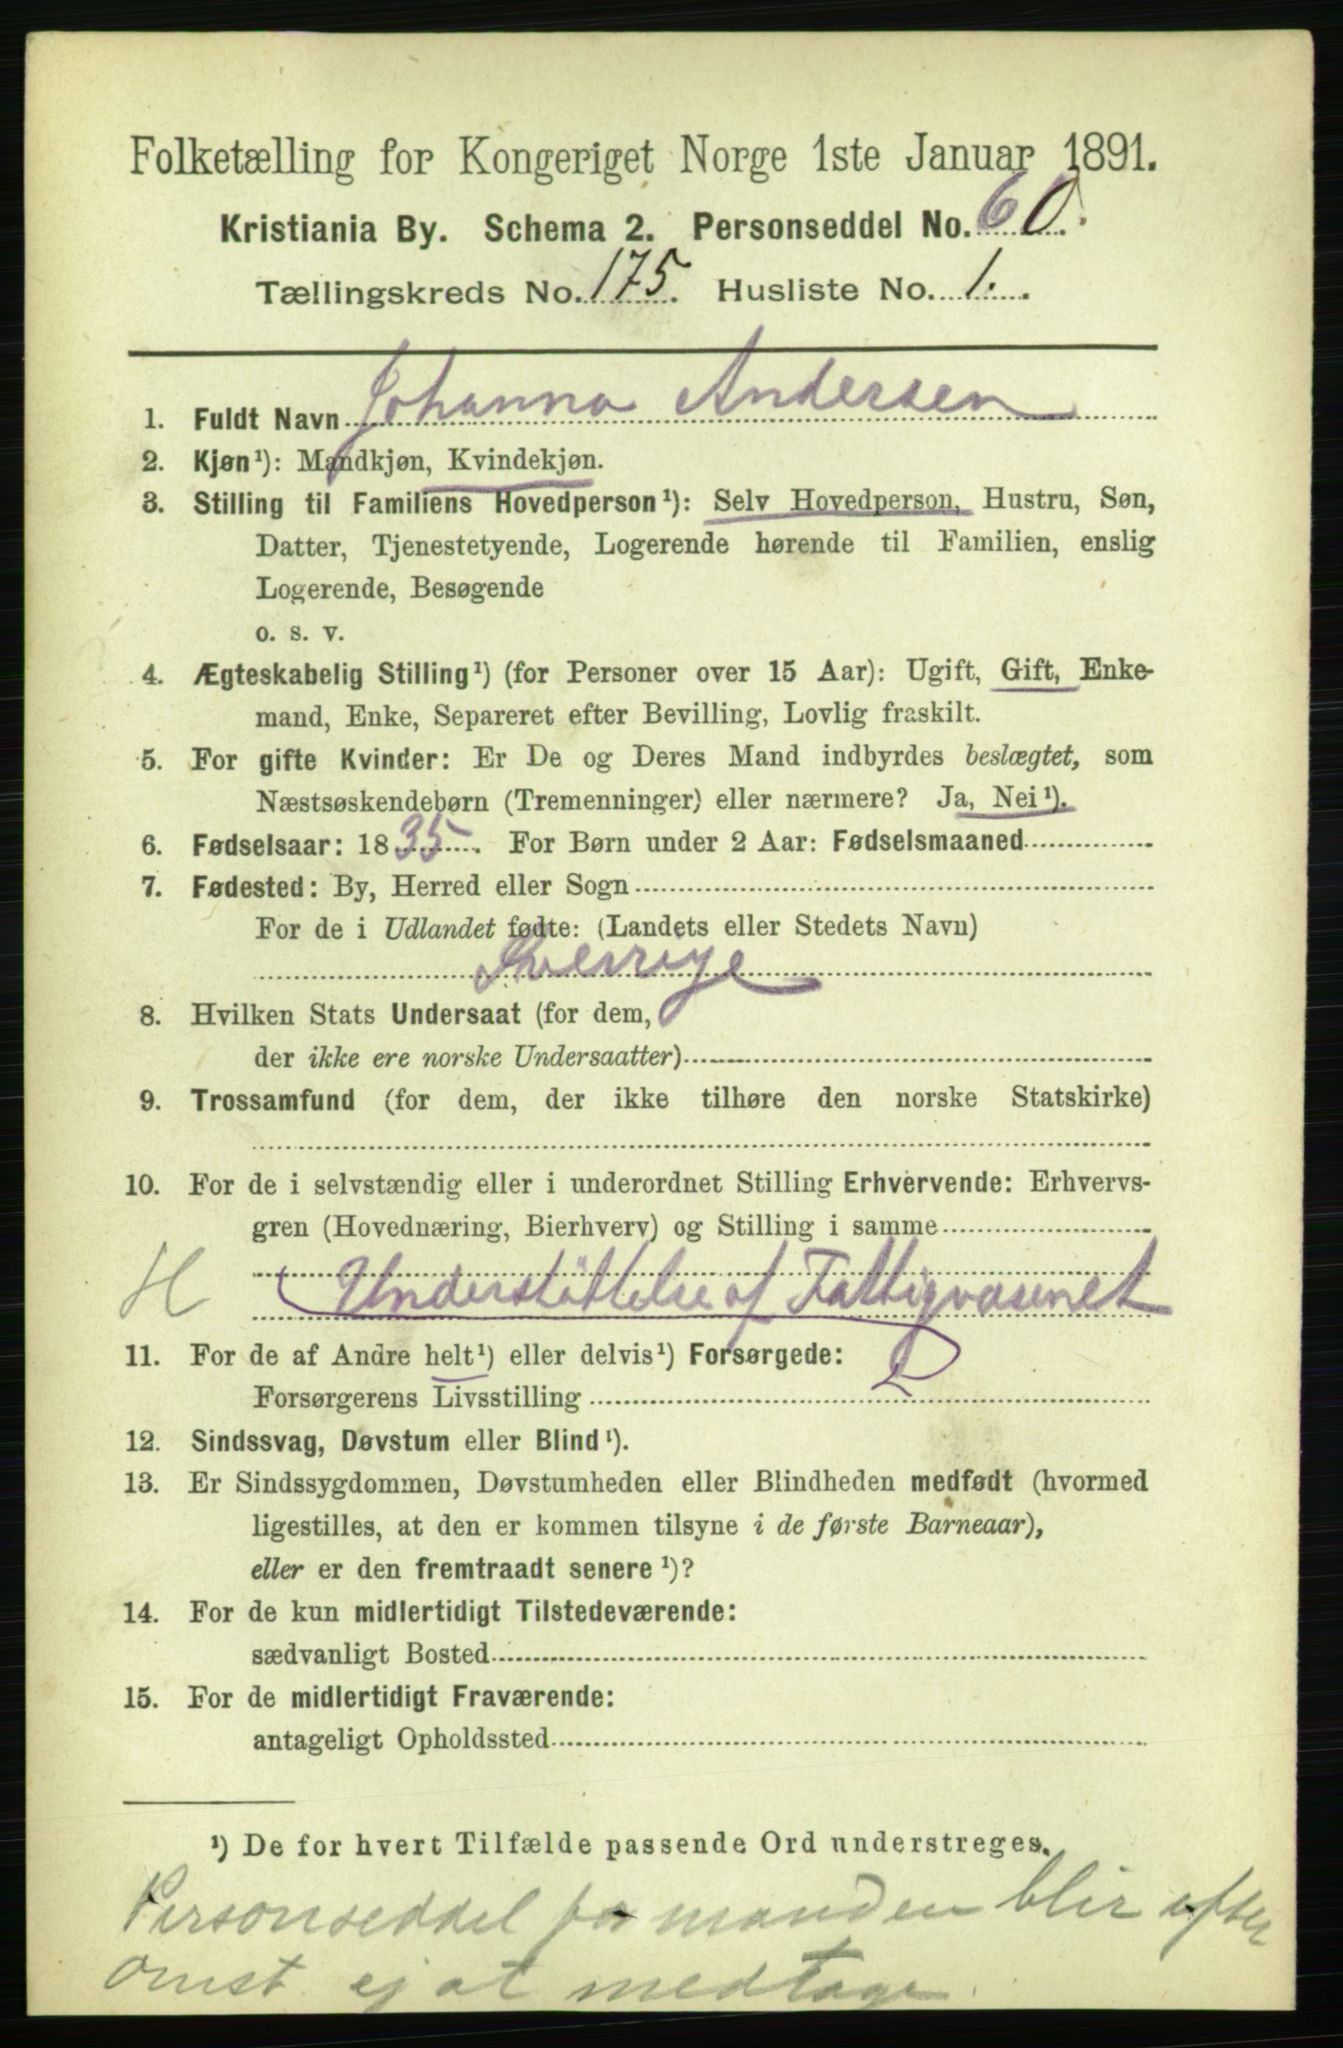 Folketælling for Kongeriget Norge 1ste Januar 1891.
Kristiania By. Schema 2. Personseddel No. 60.
Tællingskreds No. 175. Husliste No. 1.
1. Fuldt Navn Johanna Andersen
2. Kjøn¹): Mandkjøn, Kvindekjøn.
3. Stilling til Familiens Hovedperson¹): Selv Hovedperson, Hustru, Søn,
Datter, Tjenestetyende, Logerende hørende til Familien, enslig
Logerende, Besøgende
o. s. v.
4. Ægteskabelig Stilling¹) (for Personer over 15 Aar): Ugift, Gift, Enke-
mand, Enke, Separeret efter Bevilling, Lovlig fraskilt.
5. For gifte Kvinder: Er De og Deres Mand indbyrdes beslægtet, som
Næstsøskendebørn (Tremenninger) eller nærmere? Ja, Nei¹).
6. Fødselsaar: 1835. For Børn under 2 Aar: Fødselsmaaned
7. Fødested: By, Herred eller Sogn
For de i Udlandet fødte: (Landets eller Stedets Navn)
Sverrige
8. Hvilken Stats Undersaat (for dem,
der ikke ere norske Undersaatter)
9. Trossamfund (for dem, der ikke tilhøre den norske Statskirke)
10. For de i selvstændig eller i underordnet Stilling Erhvervende: Erhvervs-
gren (Hovednæring, Bierhverv) og Stilling i samme
H Understöttelse af Fattigvæsenet
11. For de af Andre helt¹) eller delvis¹) Forsørgede:
Forsørgerens Livsstilling
12. Sindssvag, Døvstum eller Blind¹).
13. Er Sindssygdommen, Døvstumheden eller Blindheden medfødt (hvormed
ligestilles, at den er kommen tilsyne i de første Barneaar),
eller er den fremtraadt senere¹)?
14. For de kun midlertidigt Tilstedeværende:
sædvanligt Bosted
15. For de midlertidigt Fraværende:
antageligt Opholdssted
¹) De for hvert Tilfælde passende Ord understreges.
Personseddel for manden blir efter
omst. ej at medtage.